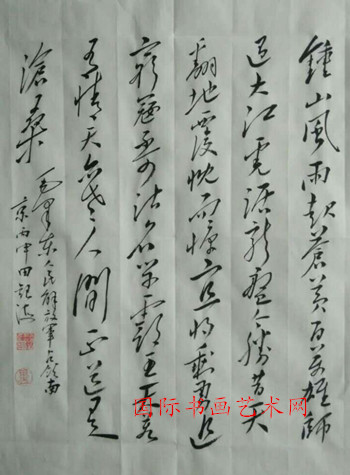 鍾山風雨起蒼黃百万雄師
过大江虎踞龙盘今勝昔天
翻地覆慨而慷宜将剩勇追
窮寇不可沽名学霸王天若
有情天亦老人間正道是
滄桑
毛澤东人民解放軍占領南
京丙申田
国际书画艺术网